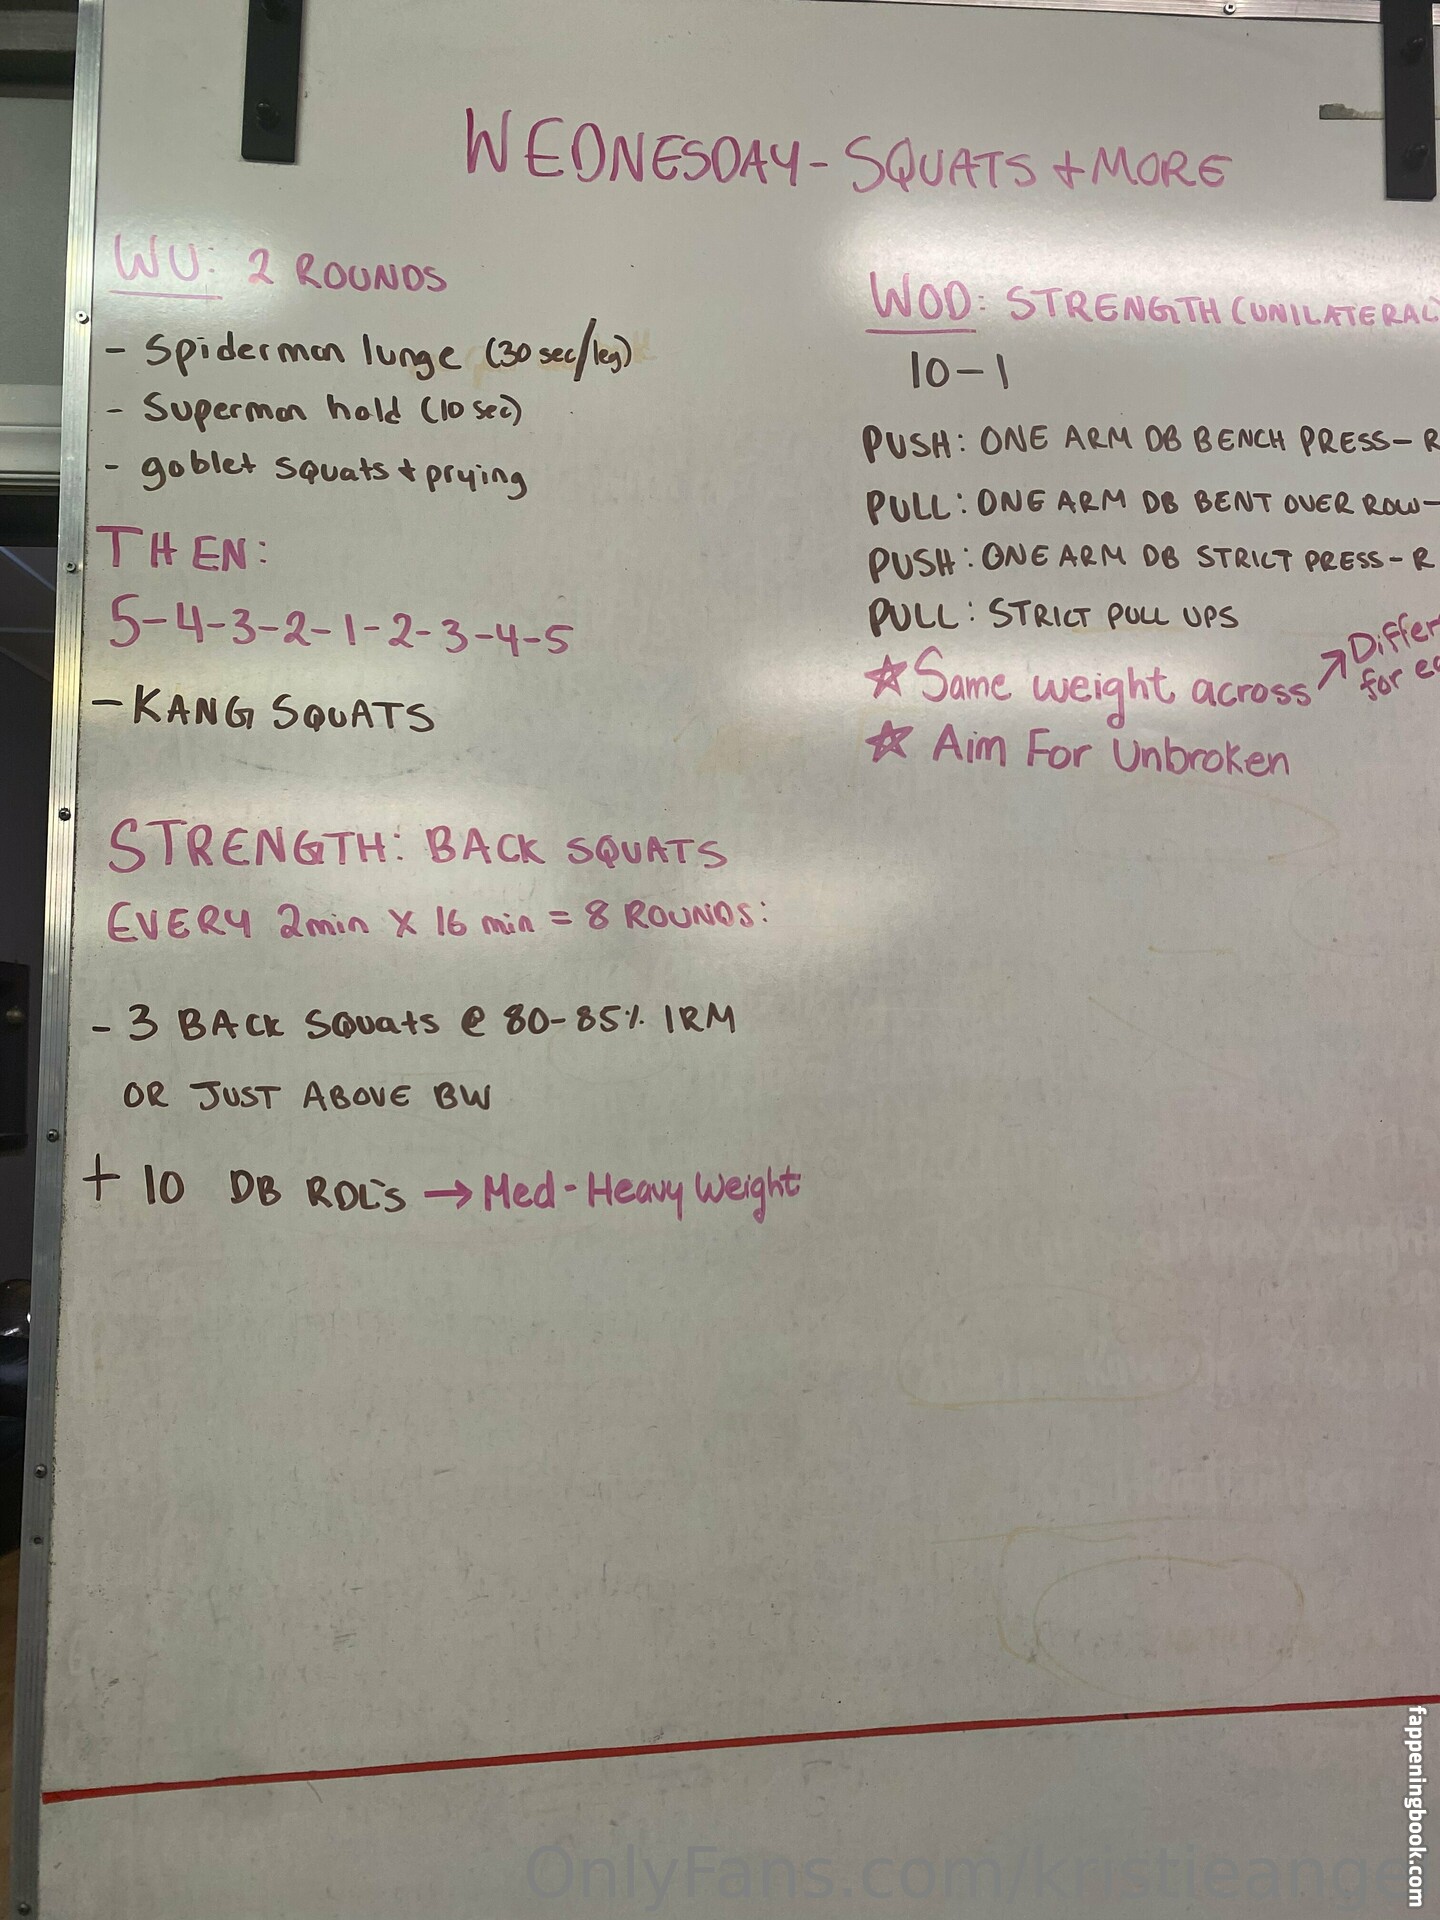 WEDNESDAY - SQUATS + MORE
WU: 2 ROUNDS
- Spiderman lunge (30 sec/leg)
- Superman hold (10 sec)
- goblet squats + prying
THEN:
5-4-3-2-1-2-3-4-5
- KANG SQUATS
STRENGTH: BACK SQUATS
EVERY 2min X 16 min = 8 ROUNDS:
- 3 BACK SQuats @ 80-85% 1RM
OR JUST ABOVE BW
+ 10 DB RDL'S → Med-Heavy Weight
WOD: STRENGTH (UNILATERAL)
10-1
PUSH: ONE ARM DB BENCH PRESS- R
PULL: ONE ARM DB BENT OVER ROW-
PUSH: ONE ARM DB STRICT PRESS- R
PULL: STRICT PULL UPS
☆ Same weight across ↗ Differ
for
☆ Aim For Unbroken
fappeningbook.com
OnlyFans.com/kristieange